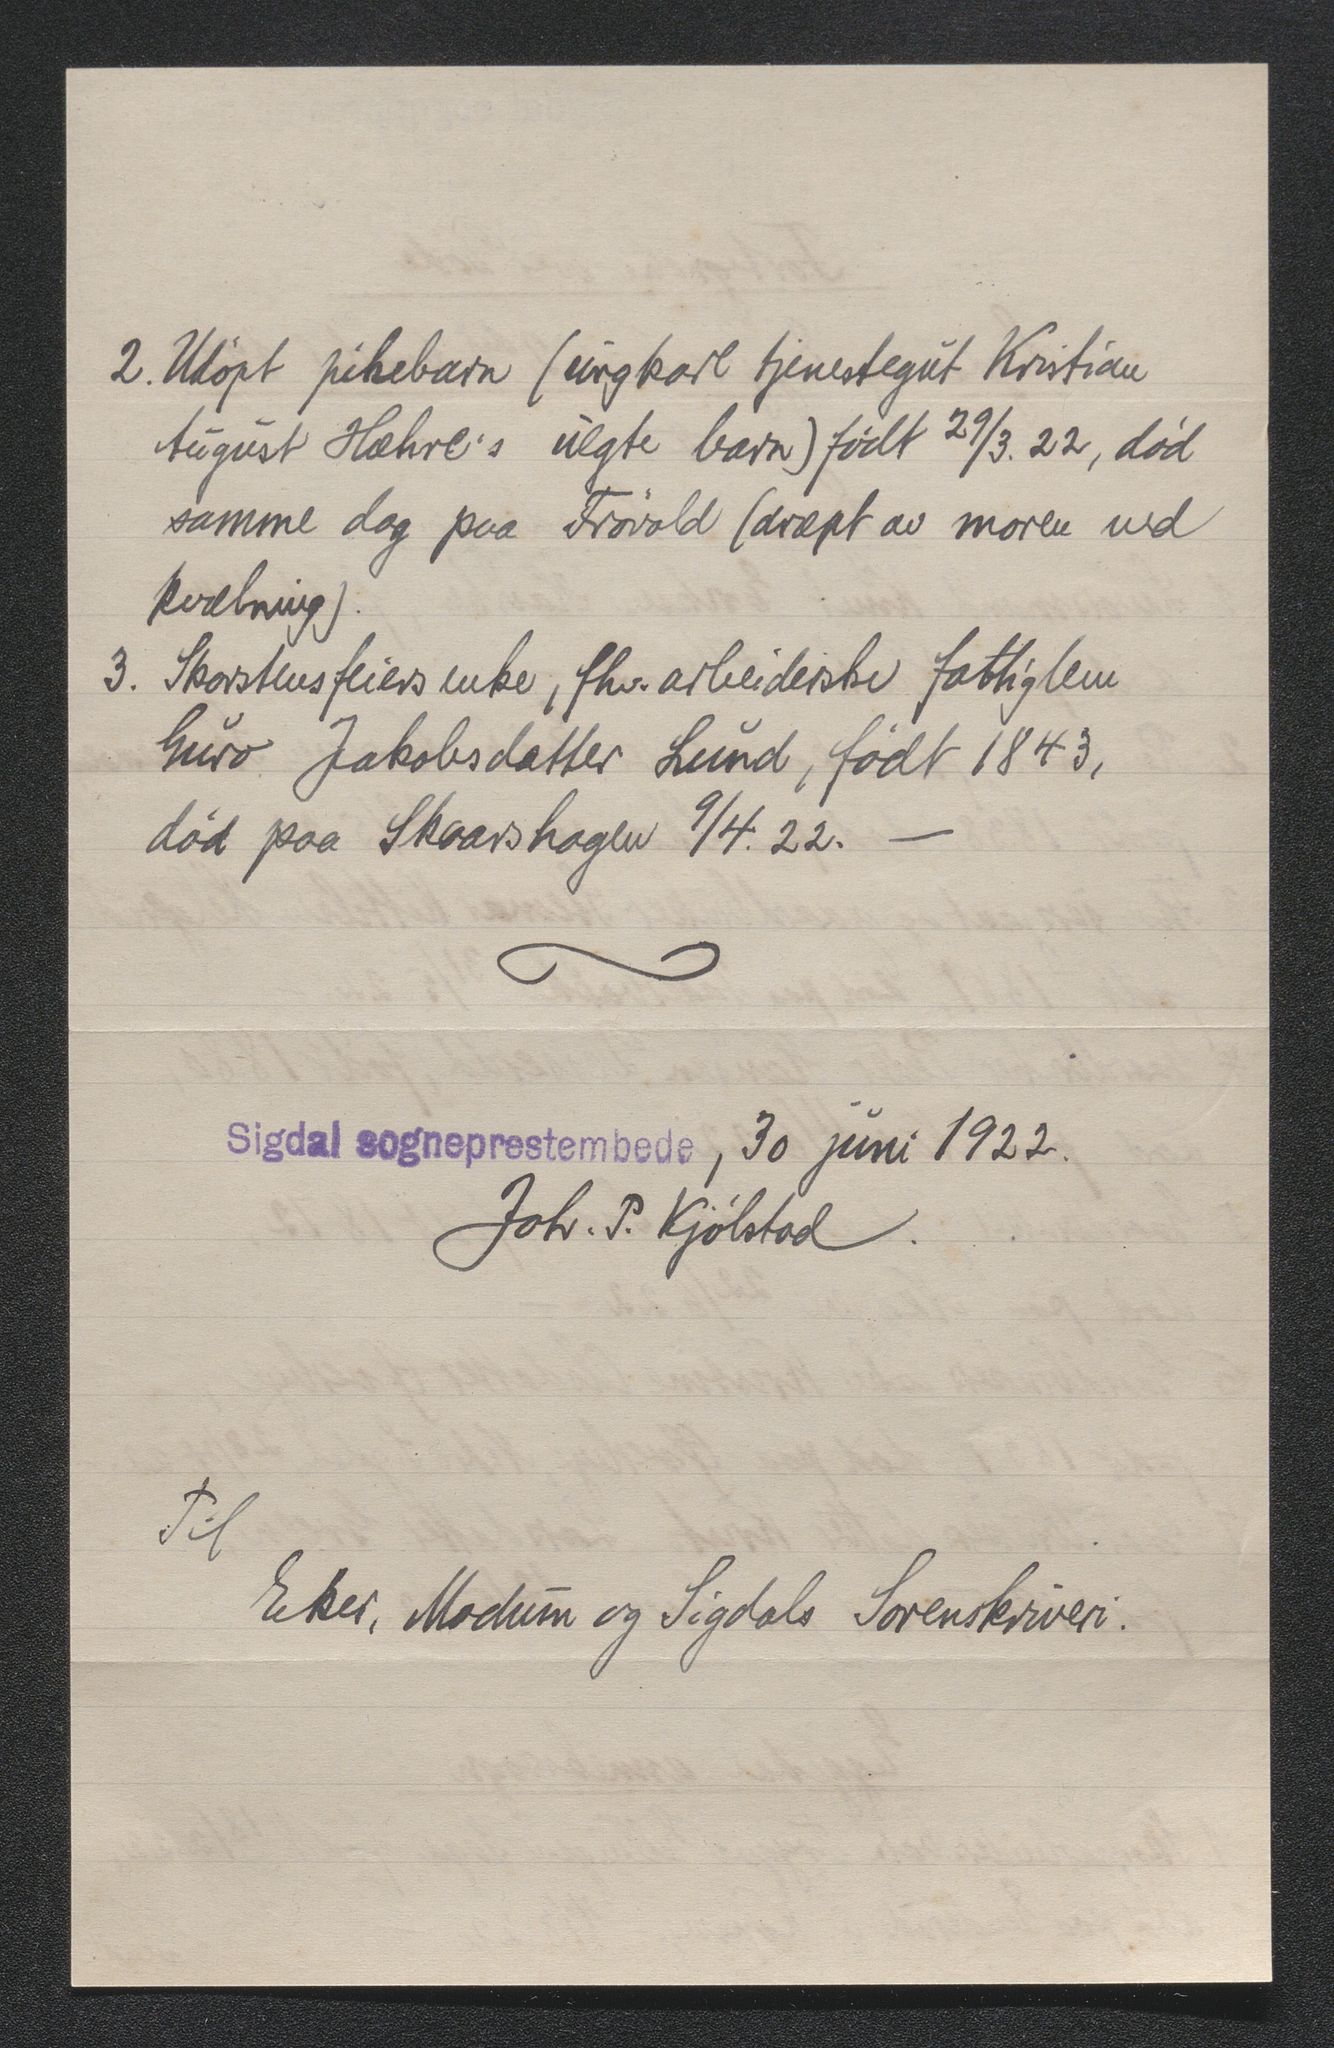 2. Udöpt pikebarn (ungkarl tjenestegut Kristian
August Hæhre's uegte barn) født 29/3. 22, död
samme dag paa Frövold (dræpt av moren ved
kvælning).
3. Skorstensfeiers enke, fhv. arbeiderske fattiglem
Guro Jakobsdatter Lund, födt 1843,
död paa Skaarshagen 9/4. 22. —
Sigdal sogneprestembede, 30 juni 1922.
Joh. P. Kjölstad.
Til
Eker, Modum og Sigdals Sorenskriveri.